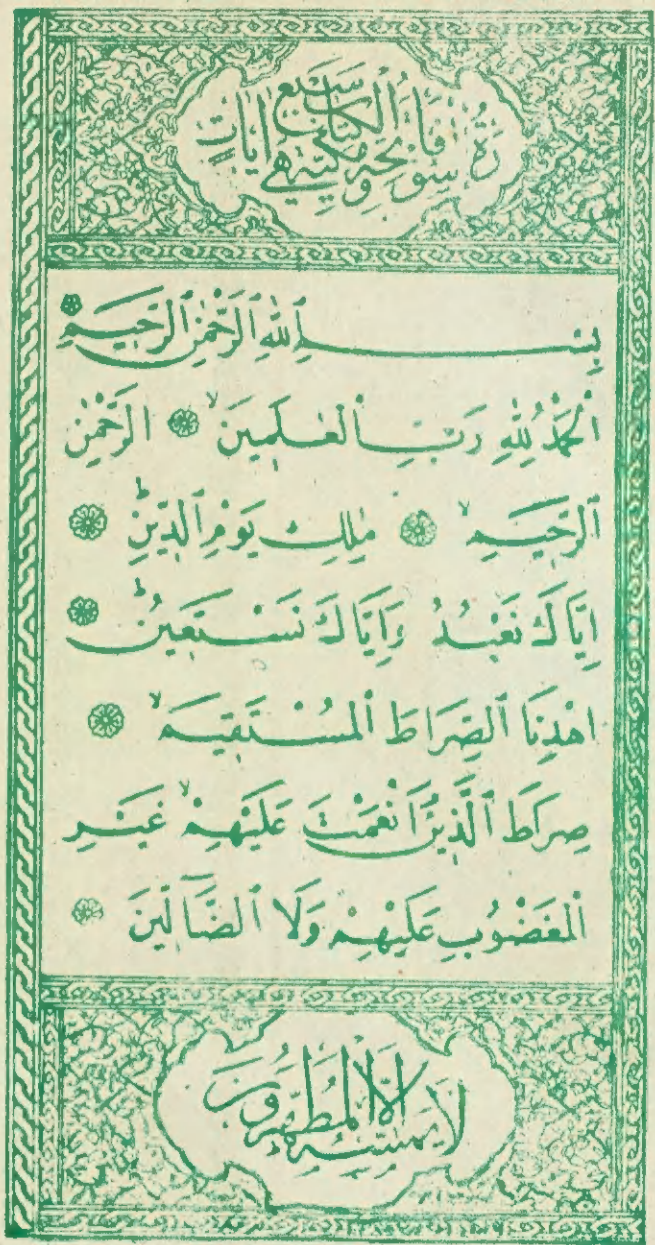 سورة فاتحة الكتاب سبع ايات وهي مكية
بِسْمِ ٱللّٰهِ ٱلرَّحْمٰنِ ٱلرَّحِيمِ
اَلْحَمْدُ لِلّٰهِ رَبِّ ٱلْعٰلَمِينَ ۙ اَلرَّحْمٰنِ
ٱلرَّحِيمِ ۙ مٰلِكِ يَوْمِ ٱلدِّينِ ۜ
اِيَّاكَ نَعْبُدُ وَاِيَّاكَ نَسْتَعِينُ ۜ
اِهْدِنَا ٱلصِّرَاطَ ٱلْمُسْتَقِيمَ ۙ
صِرَاطَ ٱلَّذِينَ اَنْعَمْتَ عَلَيْهِمْ ۙ غَيْرِ
ٱلْمَغْضُوبِ عَلَيْهِمْ وَلَا ٱلضَّٓالِّينَ
لَا يَمَسُّهُ اِلَّا ٱلْمُطَهَّرُونَ